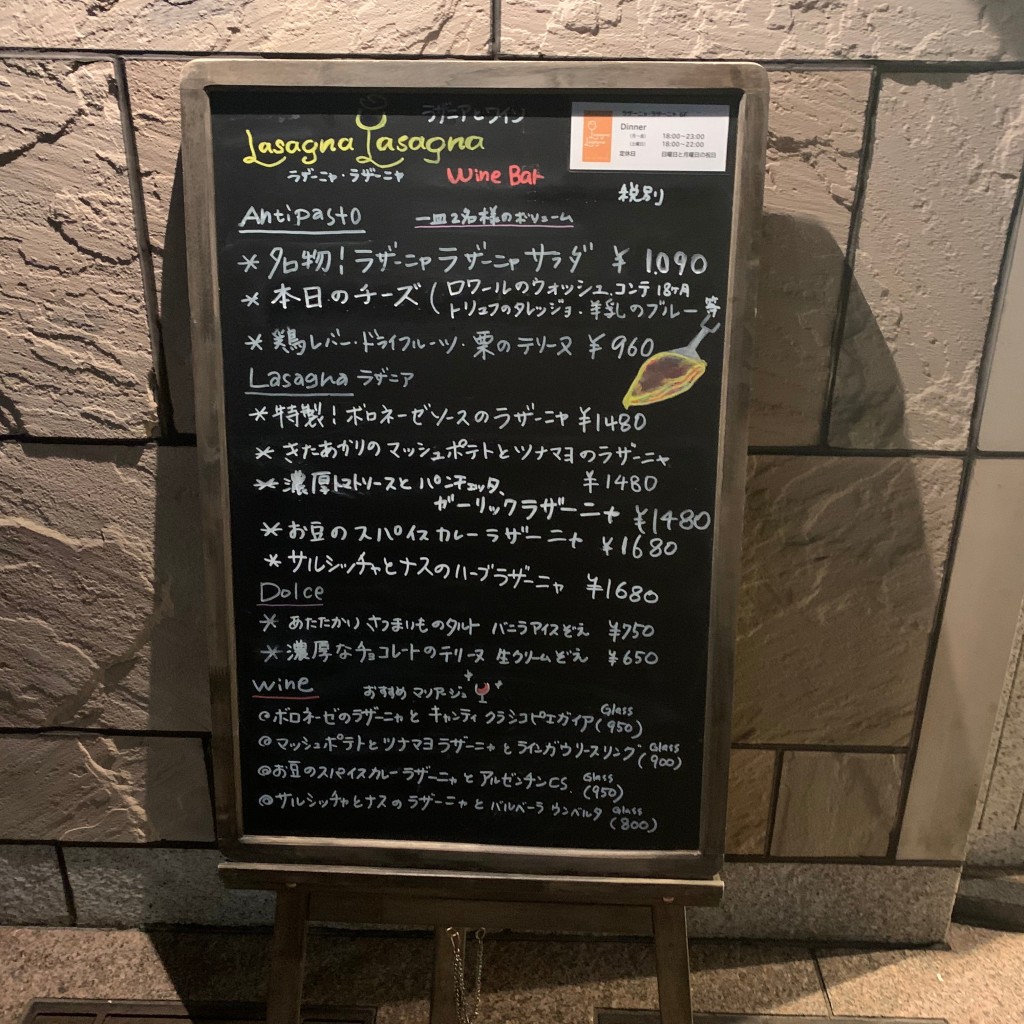 ラザニアとワイン
Lasagna Lasagna
ラザーニャ・ラザーニャ
Wine Bar
Dinner
18:00~23:00
18:00~22:00
定休日 日曜日と月曜日の祝日
税別
Antipasto 一皿2名様のボリューム
* 名物！ラザーニャラザーニャサラダ ¥1090
* 本日のチーズ（ロワールのウォッシュ、コンテ18ヶ月
トリュフのタレッジョ・羊乳のブルー等
* 鶏レバー・ドライフルーツ・栗のテリーヌ ¥960
Lasagna ラザニア
* 特製！ボロネーゼソースのラザーニャ ¥1480
* きたあかりのマッシュポテトとツナマヨのラザーニャ
¥1480
* 濃厚トマトソースとパンチェッタ、
ガーリックラザーニャ ¥1480
* お豆のスパイスカレーラザーニャ ¥1680
* サルシッチャとナスのハーブラザーニャ ¥1680
Dolce
* あたたかいさつまいものタルト バニラアイスぞえ ¥750
* 濃厚なチョコレートのテリーヌ 生クリームぞえ ¥650
wine おすすめマリアージュ
@ボロネーゼのラザーニャと キャンティ クラシコピエガイア Glass (950)
@マッシュポテトとツナマヨラザーニャとラインガウリースリング Glass (900)
@お豆のスパイスカレーラザーニャと アルゼンチンCS. Glass (950)
@サルシッチャとナスのラザーニャと バルベーラ ウンベルタ Glass (800)